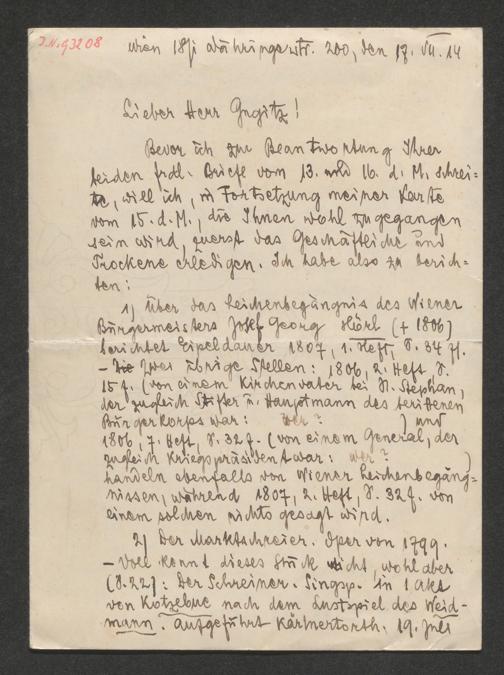 J.N. 93208
Wien 18/1 Währingerstr. 200, den 17. VII. 14
Lieber Herr Gugitz!
Bevor ich zur Beantwortung Ihrer
beiden frdl. Briefe vom 13. und 16. d. M. schrei=
te, will ich, in Fortsetzung meiner Karte
vom 15. d. M., die Ihnen wohl zugegangen
sein wird, zuerst das Geschäftliche und
Trockene erledigen. Ich habe also zu berich=
ten:
1) Über das Leichenbegängnis des Wiener
Bürgermeisters Josef Georg Hörl (+ 1806)
berichtet Eipeldauer 1807, 1. Heft, S. 34 ff.
– Die zwei übrige Stellen: 1806, 2. Heft, S.
15 f. (von einem Kirchenvater bei St. Stephan,
der zugleich Stifter u. Hauptmann des berittenen
Bürgerkorps war: wer? ) und
1806, 7. Heft, S. 32 f. (von einem General, der
zugleich Kriegspräsident war: wer? )
handeln ebenfalls von Wiener Leichenbegäng=
nissen, während 1807, 2. Heft, S. 32 f. von
einem solchen nichts gesagt wird.
2) Der Marktschreier. Oper von 1799.
– Voll kennt dieses Stück nicht, wohl aber
(S. 22): Der Schreiner. Singsp. in 1 Akt
von Kotzebue nach dem Lustspiel des Weid-
mann. Aufgeführt Kärtnertorth. 19. Juli